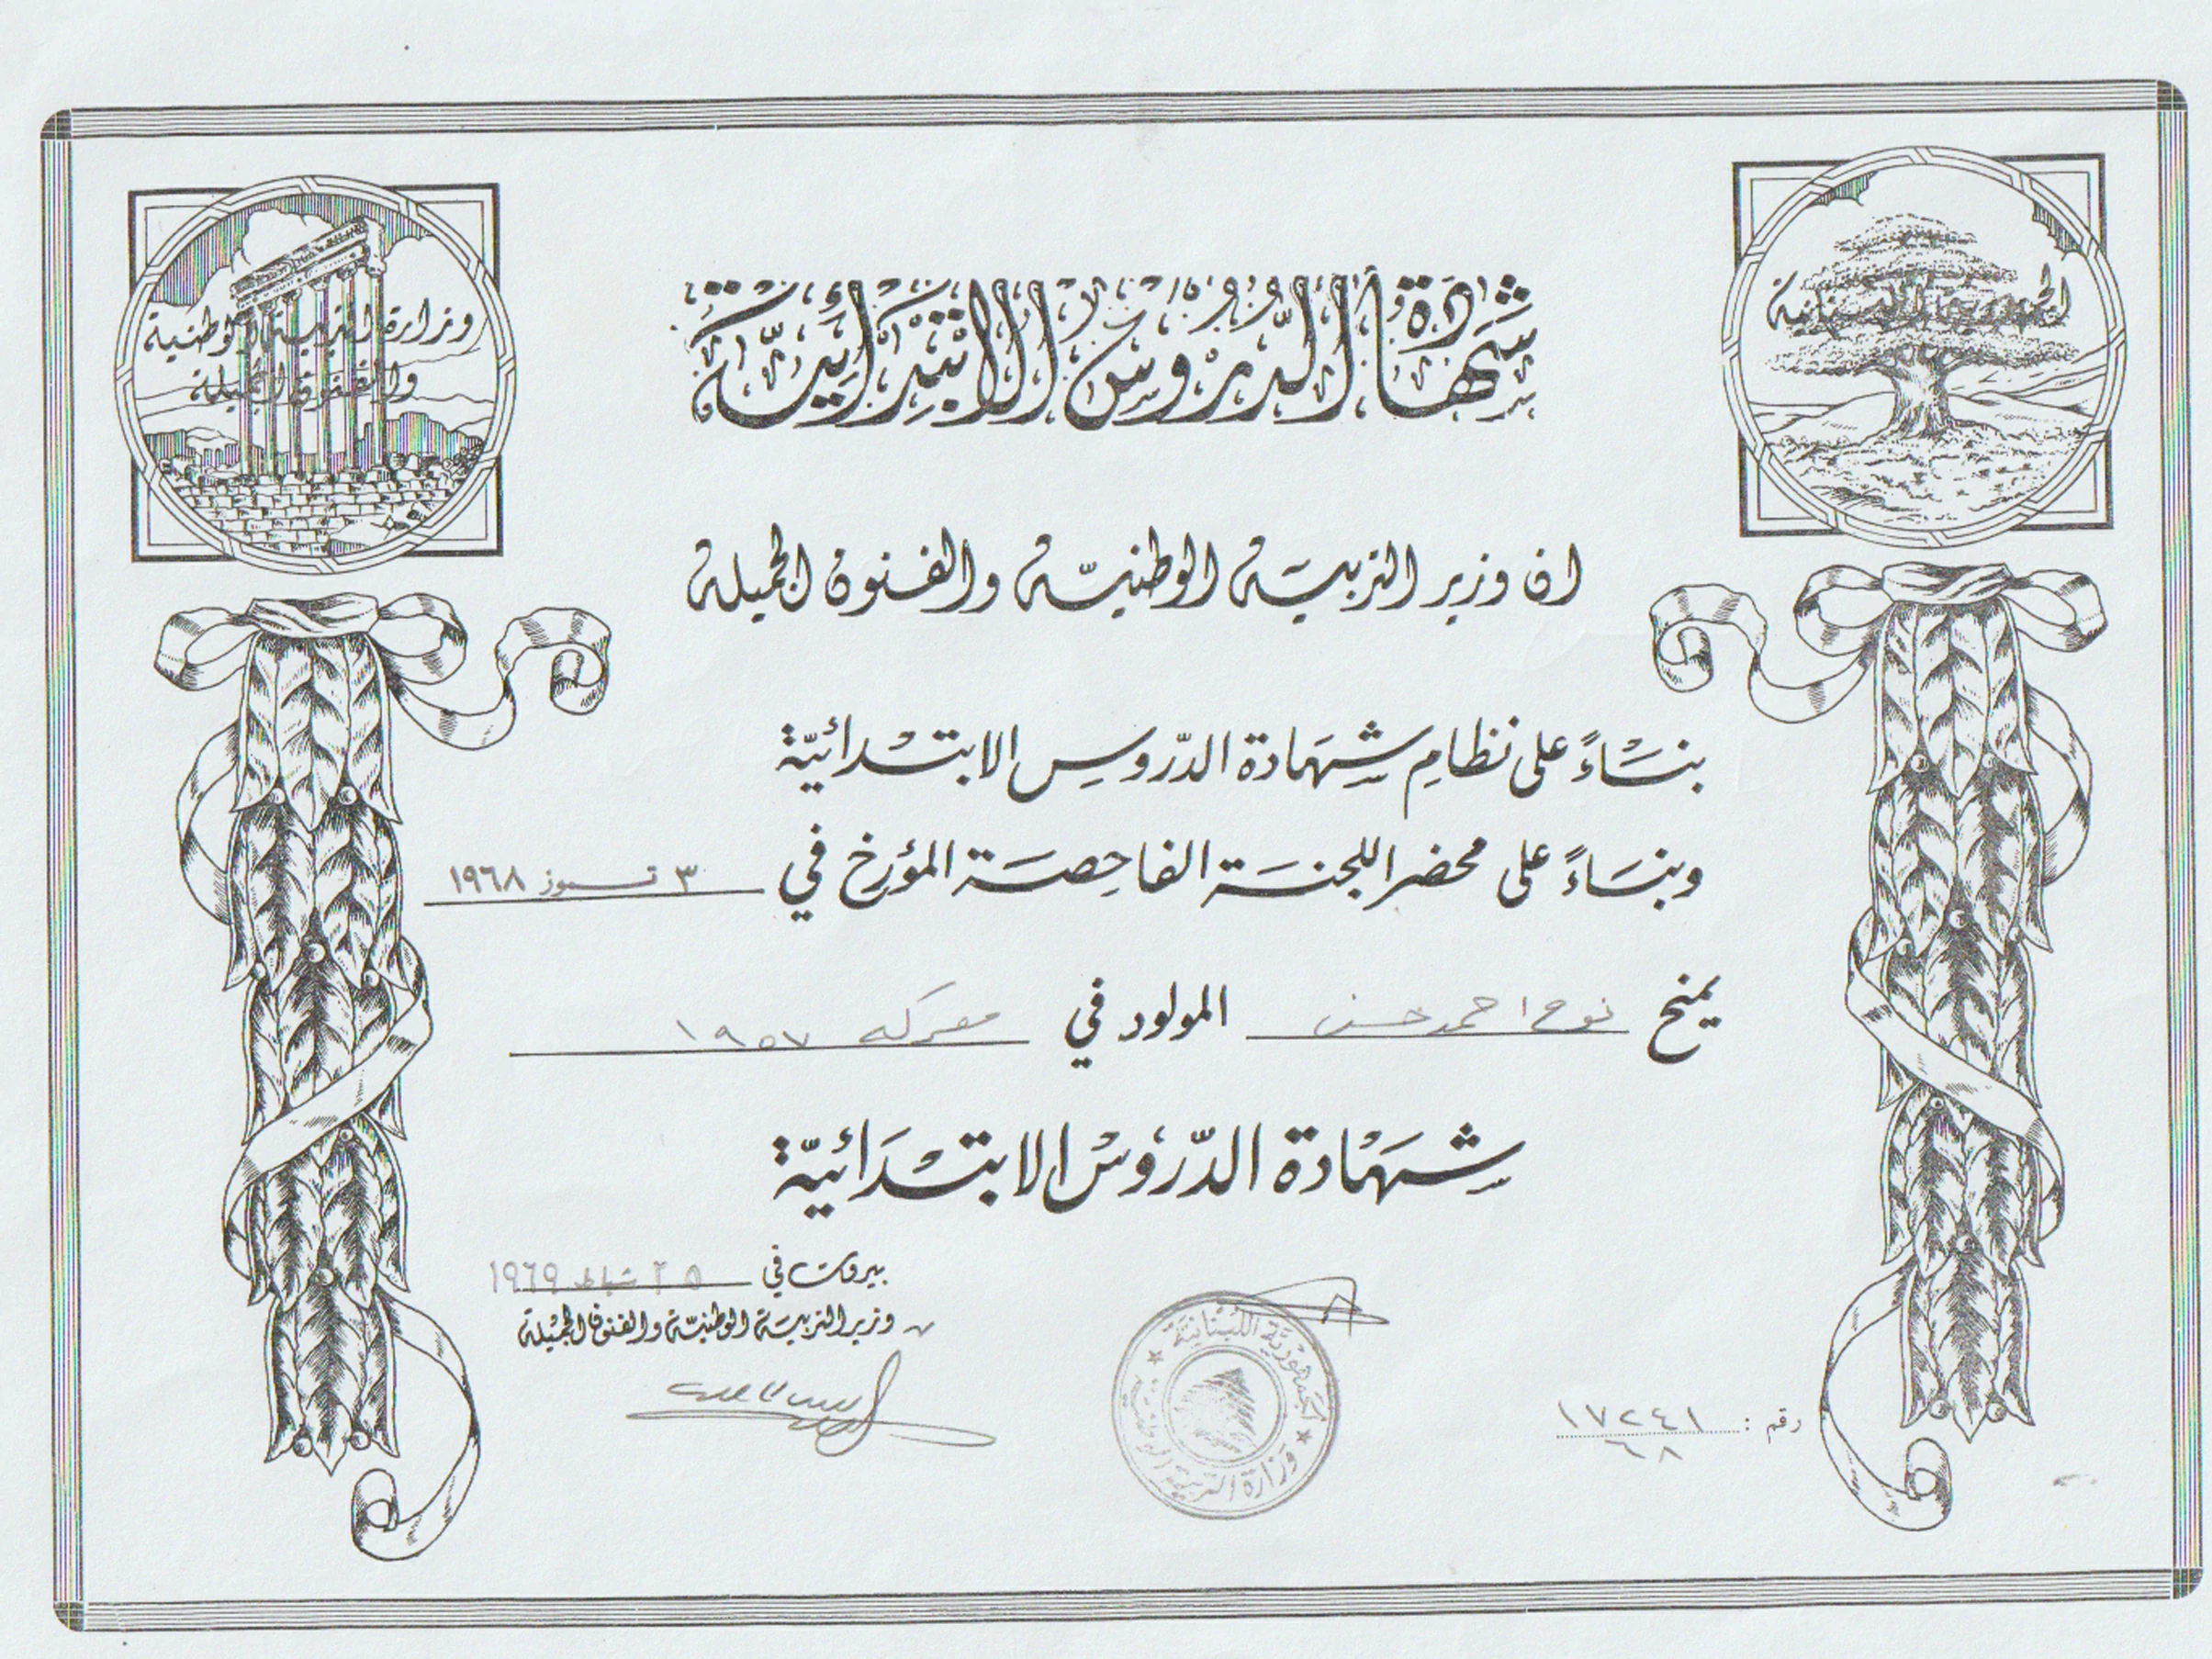 الجمهورية اللبنانية
وزارة التربية الوطنية
والفنون الجميلة
شهادة الدّروس الابتدائيّة
ان وزير التربية الوطنيّة والفنون الجميلة
بنَاءً على نظامِ شهَادة الدّروسِ الابتدائيّة
وبنَاءً على محضر اللجنة الفاحِصَة المؤرخ في ٣ تموز ١٩٦٨
يمنح نوح احمد حسن المولود في معركه ١٩٥٧
شهَادة الدّروسْ الابتْدَائيّة
بيروت في ٢٥ شباط ١٩٦٩
وزير التربيَة الوطنيّة والفنون الجميْلة
الجمهوريّة اللبنانيّة
وزارة التربية الوطنية
رقم : ١٧٢٤١
٦٨